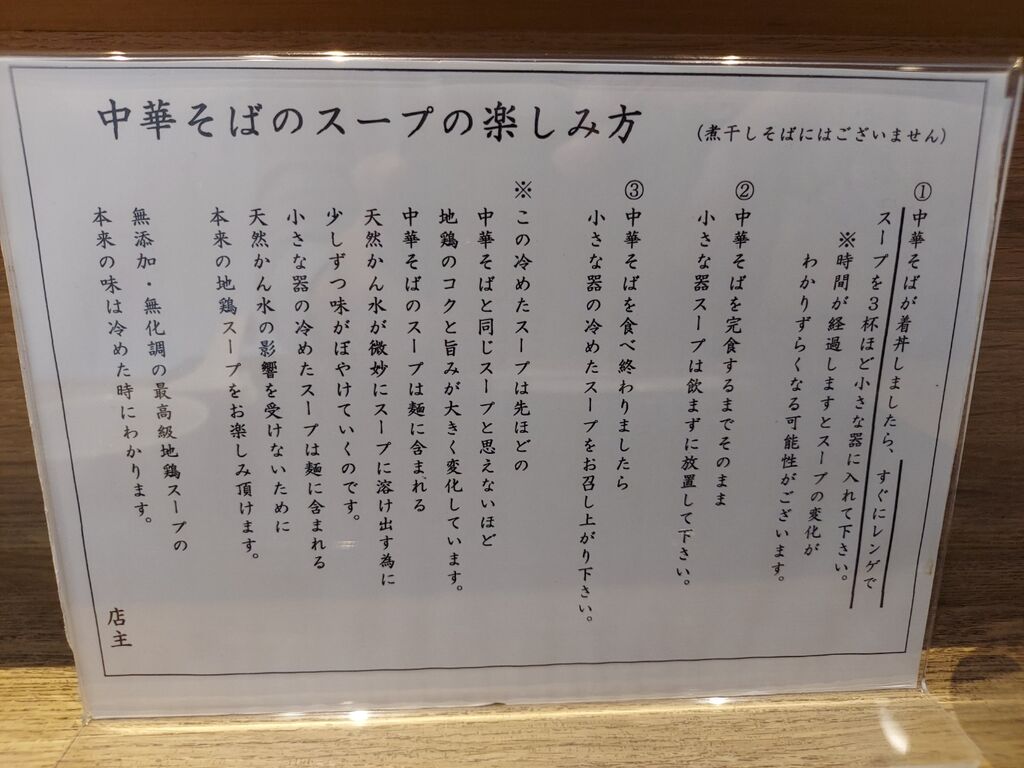 中華そばのスープの楽しみ方
(煮干しそばにはございません)
①中華そばが着丼しましたら、すぐにレンゲで
スープを3杯ほど小さな器に入れて下さい。
※時間が経過しますとスープの変化が
わかりずらくなる可能性がございます。
②中華そばを完食するまでそのまま
小さな器スープは飲まずに放置して下さい。
③中華そばを食べ終わりましたら
小さな器の冷めたスープをお召し上がり下さい。
※この冷めたスープは先ほどの
中華そばと同じスープと思えないほど
地鶏のコクと旨みが大きく変化しています。
中華そばのスープは麺に含まれる
天然かん水が微妙にスープに溶け出す為に
少しずつ味がぼやけていくのです。
小さな器の冷めたスープは麺に含まれる
天然かん水の影響を受けないために
本来の地鶏スープをお楽しみ頂けます。
無添加・無化調の最高級地鶏スープの
本来の味は冷めた時にわかります。
店主